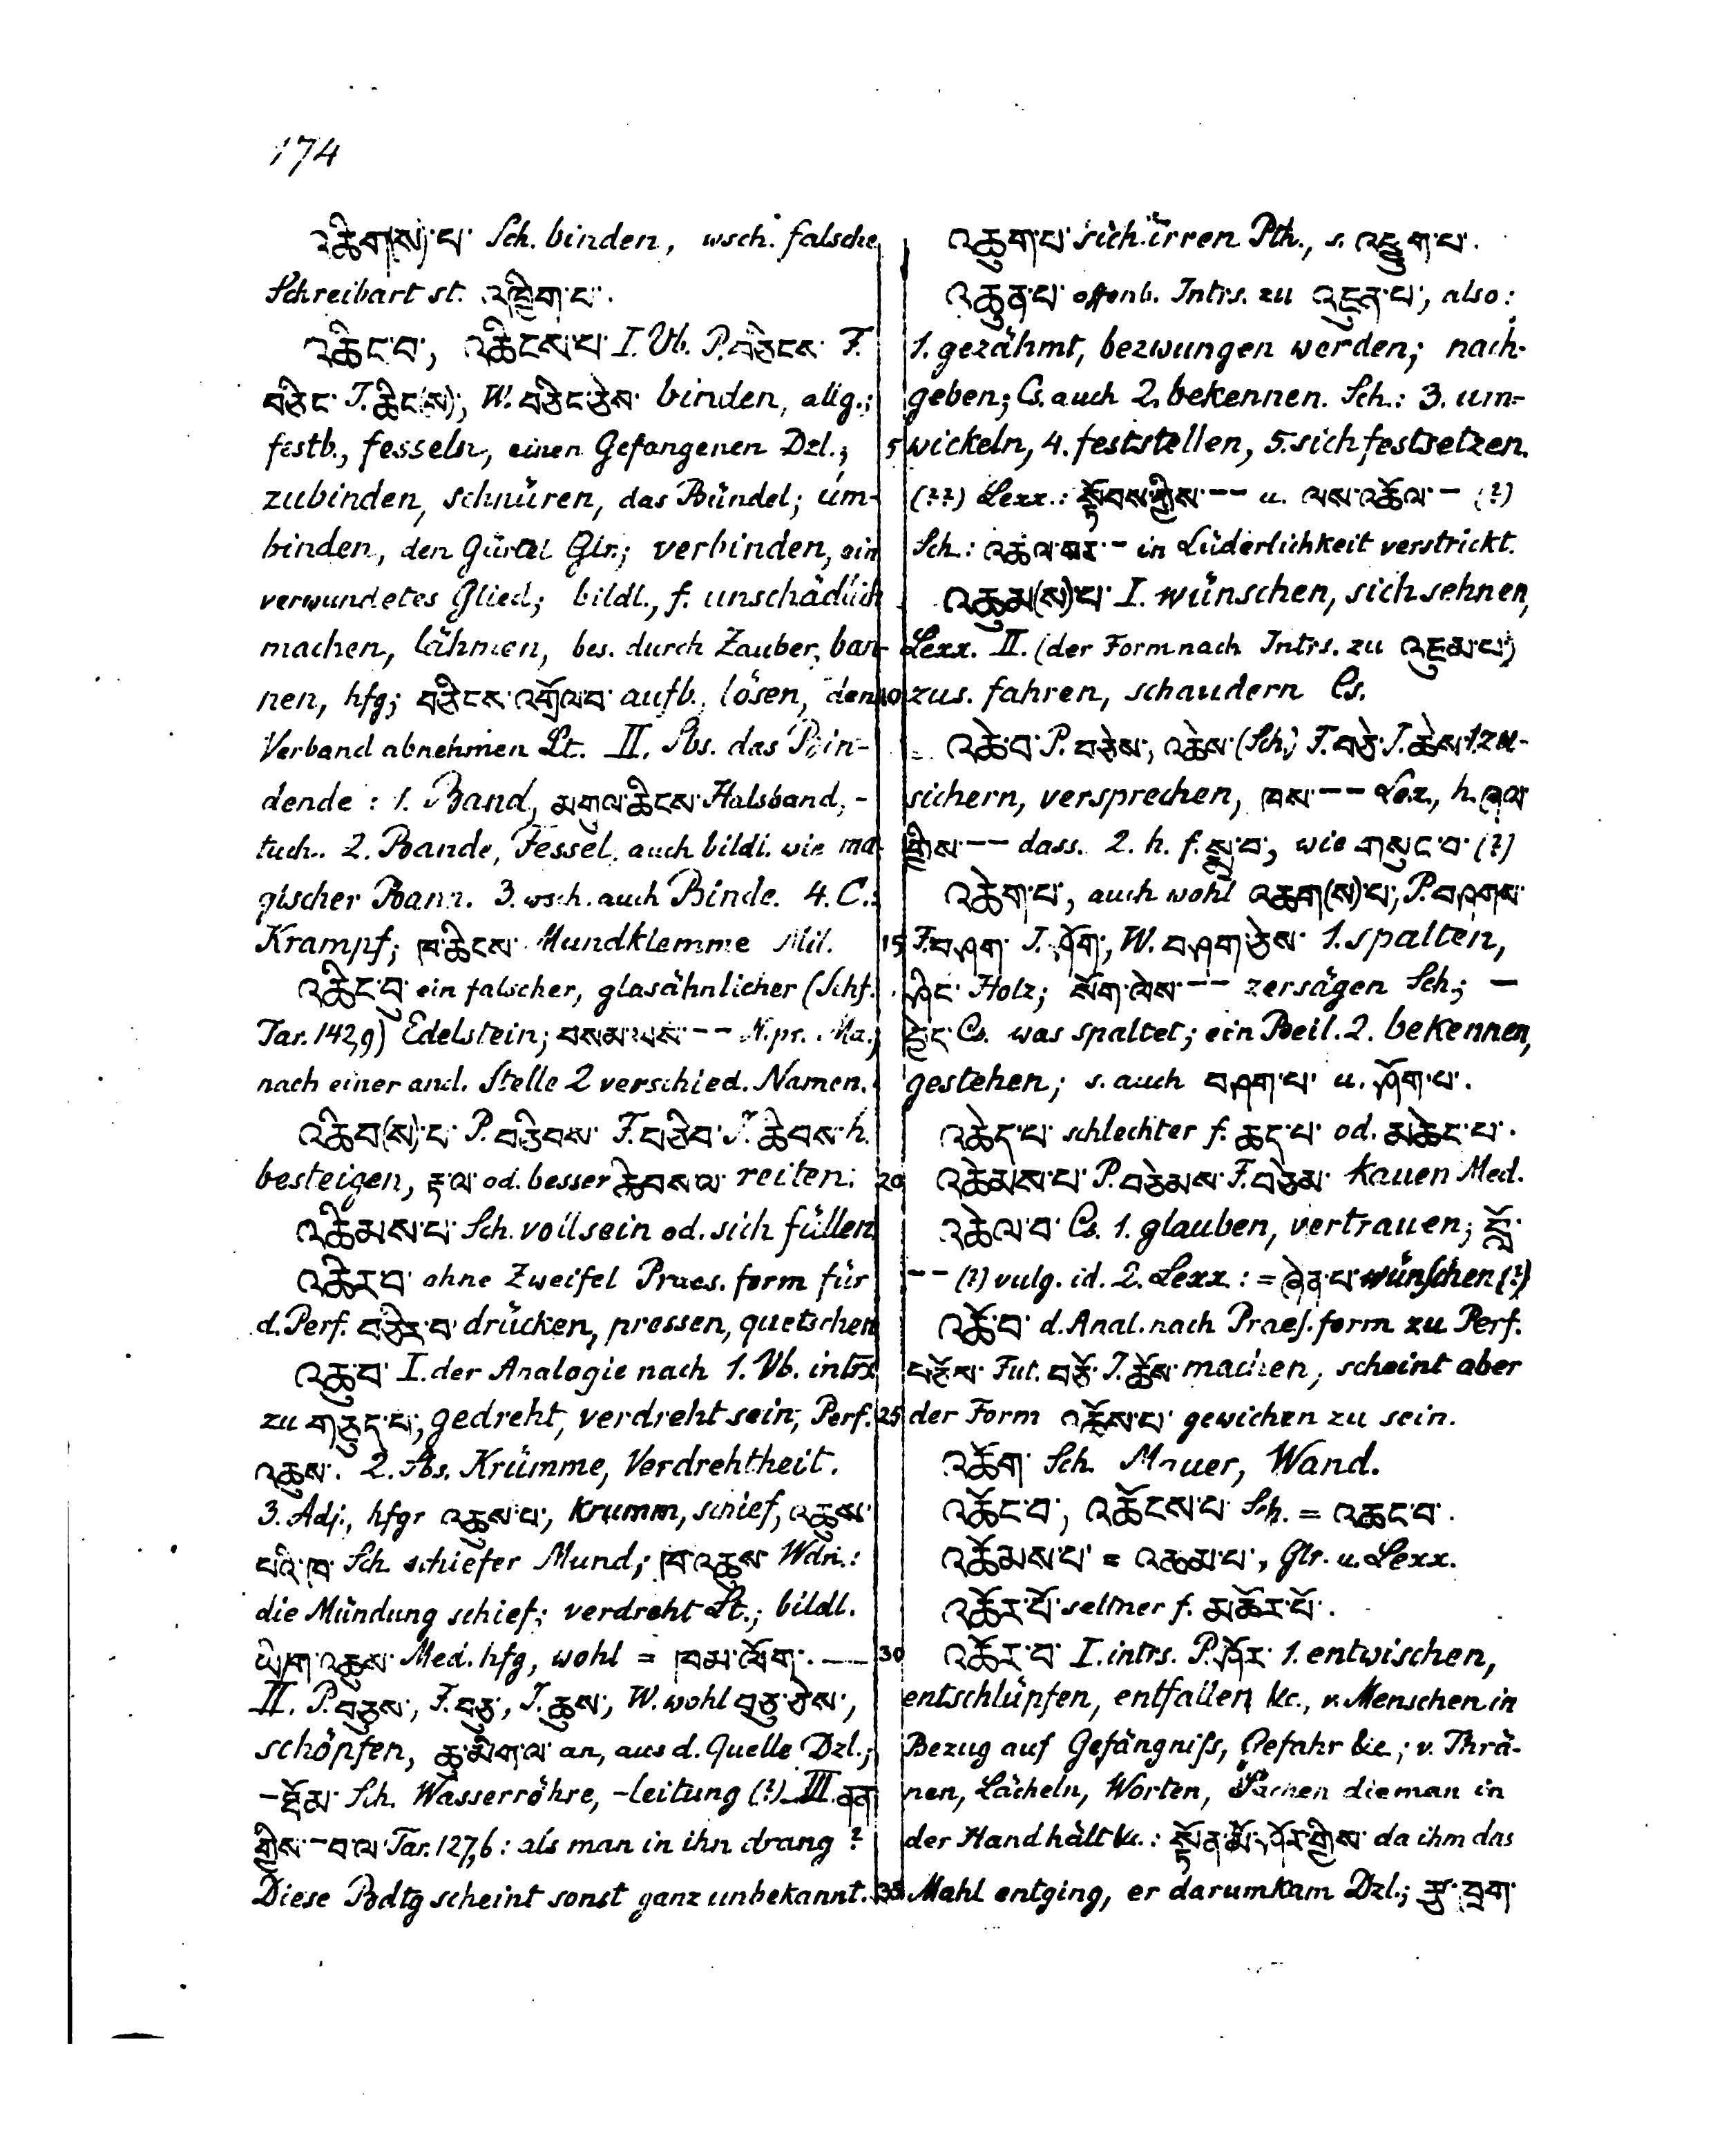 174
འཆིག(ས)་པ་ Sch. binden, wsch. falsche
Schreibart st. འཁྱིག་པ་.
འཆིང་བ་, འཆིངས་པ་ I. Vb. P. བཅིངས་ F.
བཅིང་ J. ཆིང(ས), W. བཅིང་ཅེས་ binden, allg.;
festb., fesseln, einen Gefangenen Dzl.;
zubinden, schnüren, das Bündel; úm-
binden, den Gürtel Glr.; verbinden, ein
verwundetes Glied; bildl., f. unschädlich
machen, lähmen, bes. durch Zauber, ban-
nen, hfg; བཅིངས་འགྲོལ་བ་ aufb., lösen, den
Verband abnehmen Lt. II. Sbs. das Bin-
dende: 1. Band, མགུལ་ཆིངས་ Halsband, -
tuch.. 2. Bande, Fessel, auch bildl. wie ma-
gischer Bann. 3. wsch. auch Binde. 4. C.:
Krampf; ཁ་ཆིངས་ Mundklemme Mil.
འཆིང་བུ་ ein falscher, glasähnlicher (Schf.
Tar. 142,9) Edelstein; བསམ་ཡས་ -- N.pr. Ma.;
nach einer and. Stelle 2 verschied. Namen.
འཆིབ(ས)་པ་ P. བཅིབས་ F. བཅིབ་ J. ཆིབས་ h.
besteigen, རྟ་ལ་ od. besser ཆིབས་ལ་ reiten.
འཆིམས་པ་ Sch. voll sein od. sich füllen
འཆིར་བ་ ohne Zweifel Praes. form für
d. Perf. བཅིར་བ་ drücken, pressen, quetschen
འཆུ་བ་ I. der Analogie nach 1. Vb. intrs
zu གཅུད་པ་, gedreht, verdreht sein; Perf.
འཆུས་. 2. Sbs. Krümme, Verdrehtheit.
3. Adj., hfgr འཆུས་པ་, krumm, schief, འཆུས་
པའི་ཁ་ Sch. schiefer Mund; ཁ་འཆུས་ Wdn.:
die Mündung schief; verdreht Lt.; bildl.
ཡིག་འཆུས་ Med. hfg, wohl = ཁམ་ལོག་. —
II. P. བཅུས་, F. བཅུ་, J. ཆུས་, W. wohl བཅུ་ཅེས་,
schöpfen, ཆུ་མིག་ལ་ an, aus d. Quelle Dzl.;
- Sch. Wasserröhre, -leitung (?) III. ནན་
གྱིས་ - བ་ལ་ Tar. 127,6: als man in ihn drang?
Diese Bdtg scheint sonst ganz unbekannt.
འཆུག་པ་ sich irren Pth., s. འཕྱུག་པ་.
འཆུན་པ་ offenb. Intrs. zu འཇུན་པ་, also:
1. gezähmt, bezwungen werden; nach-
geben; Cs. auch 2. bekennen. Sch.: 3. um-
5 wickeln, 4. feststellen, 5. sich festsetzen.
(??) Lexx.: སྟོབས་ཀྱིས་ -- u. ལས་འཆོལ་ - (?)
Sch.: འཆལ་པར་ - in Lüderlichkeit verstrickt.
འཆུམ(ས)་པ་ I. wünschen, sich sehnen,
Lexx. II. (der Form nach Intrs. zu འཇུམ་པ་)
10 zus. fahren, schaudern Cs.
འཆེ་བ་ P. བཅེས་, འཆེས་ (Sch.) F. བཅེ་ J. ཆེས་ 1. zu-
sichern, versprechen, ཁས་ -- Lex., h. ཞལ་
གྱིས་ -- dass. 2. h. f. སྨྲ་བ་, wie གསུང་བ་ (?)
འཆེག་པ་, auch wohl འཆག(ས)་པ་, P. བཤགས་
15 F. བཤག་ J. ཤོག་, W. བཤག་ཅེས་ 1. spalten,
ཤིང་ Holz; སོག་ལེས་ -- zersägen Sch.; —
བྱེད་ Cs. was spaltet; ein Beil. 2. bekennen,
gestehen; s. auch བཤག་པ་ u. ཤོག་པ་.
འཆེད་པ་ schlechter f. ཆད་པ་ od. མཆེད་པ་.
20 འཆེམས་པ་ P. བཅེམས་ F. བཅེམ་ kauen Med.
འཆེལ་བ་ Cs. 1. glauben, vertrauen; བློ་
-- (?) vulg. id. 2. Lexx: = ཞེན་པ་ wünschen (?)
འཆོ་བ་ d. Anal. nach Praes. form zu Perf.
བཅོས་ Fut. བཅོ་ J. ཆོས་ machen, scheint aber
25 der Form འཆོས་པ་ gewichen zu sein.
འཆོག་ Sch. Mauer, Wand.
འཆོང་བ་, འཆོངས་པ་ Sch. = འཆང་བ་.
འཆོམས་པ་ = འཆམ་པ་, Glr. u. Lexx.
འཆོར་པོ་ seltner f. མཆོར་པོ་.
30 འཆོར་བ་ I. intrs. P. ཤོར་ 1. entwischen,
entschlüpfen, entfallen &c., v. Menschen in
Bezug auf Gefängniss, Gefahr &c.; v. Thrä-
nen, Lächeln, Worten, Sachen die man in
der Hand hält &c.: སྟོན་མོ་ཤོར་གྱིས་ da ihm das
35 Mahl entging, er darum kam Dzl.;